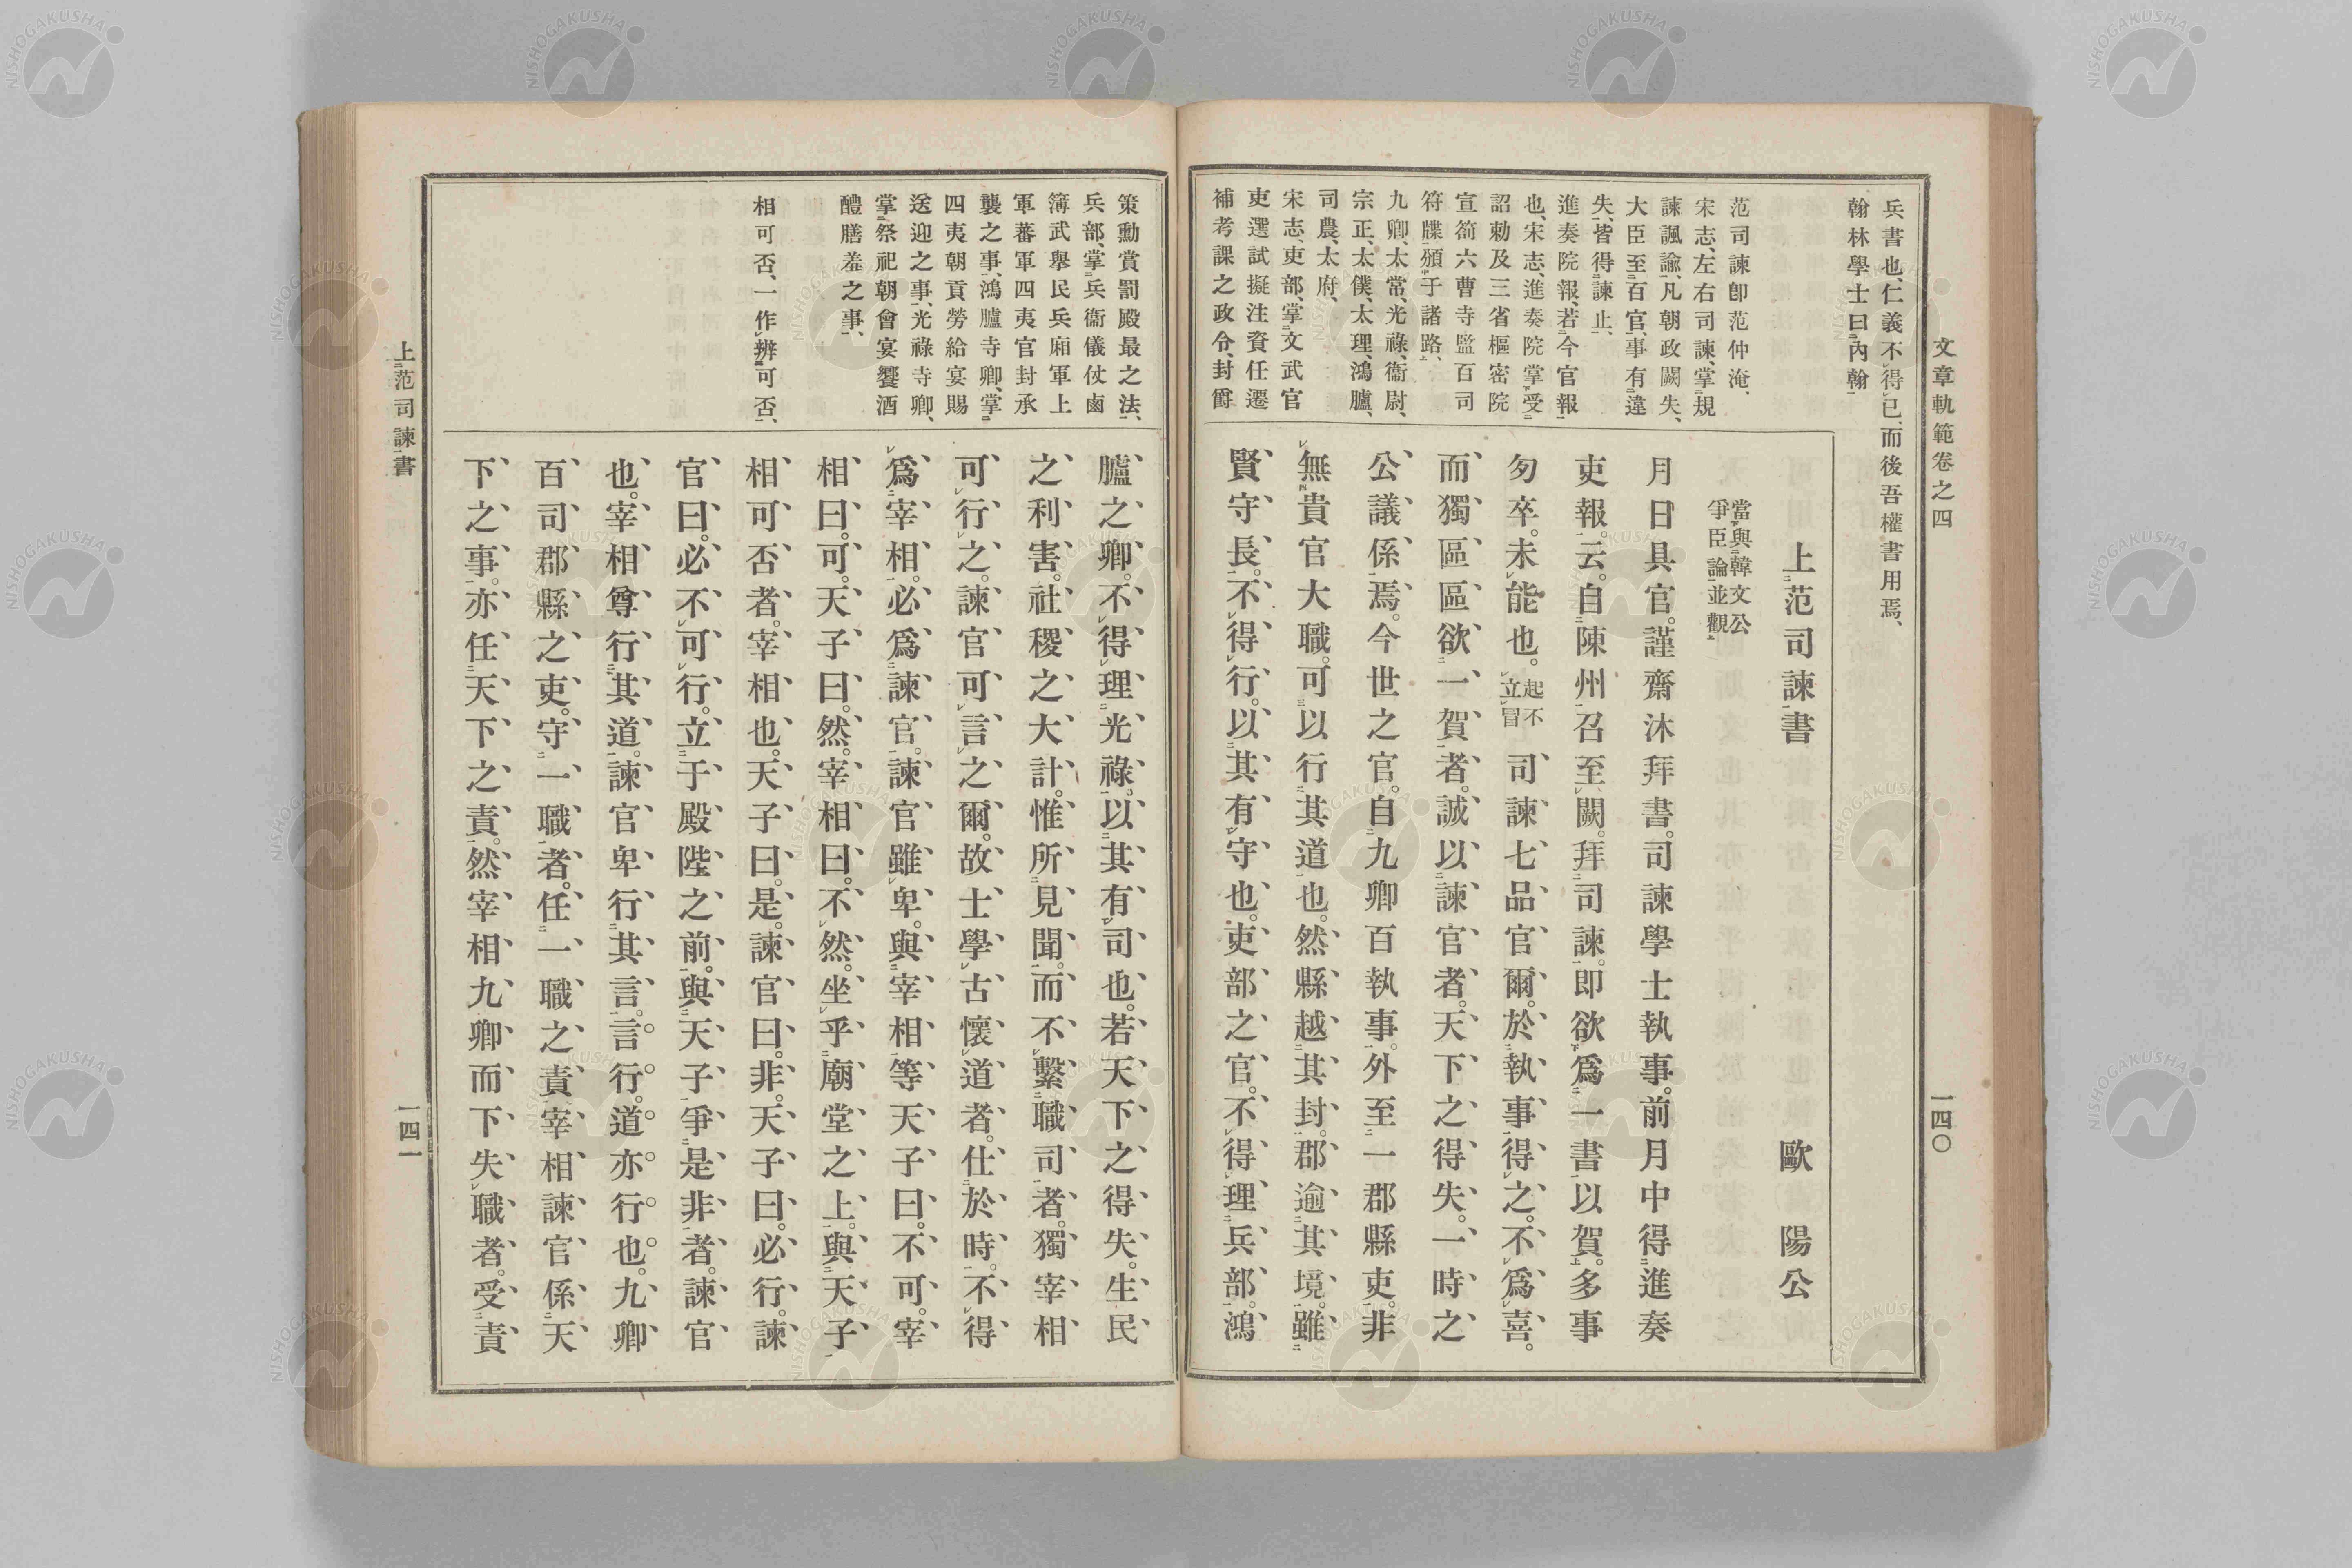 文章軌範卷之四
一四〇
兵書也、仁義不得已、而後吾權書用焉、
翰林學士曰內翰
范司諫卽范仲淹、
宋志、左右司諫、掌規
諫諷諭、凡朝政闕失、
大臣至百官、事有違
失、皆得諫止、
進奏院報、若今官報
也、宋志、進奏院掌受
詔勅及三省樞密院
宣箚六曹寺監百司
符牒、頒于諸路、
九卿、太常、光祿、衞尉、
宗正、太僕、大理、鴻臚、
司農、太府、
宋志、吏部、掌文武官
吏選試擬注資任遷
補考課之政令、封爵
上范司諫書　歐陽公
當與韓文公
爭臣論並觀
月日具官。謹齋沐拜書。司諫學士執事。前月中得進奏
吏報。云。自陳州召至闕。拜司諫。即欲爲一書以賀。多事
匆卒。未能也。起不立冒司諫七品官爾。於執事得之。不爲喜。
而獨區區欲一賀者。誠以諫官者。天下之得失。一時之
公議係焉。今世之官。自九卿百執事。外至一郡縣吏。非
無貴官大職。可以行其道也。然縣越其封。郡逾其境。雖
賢守長。不得行。以其有守也。吏部之官。不得理兵部。鴻
策勳賞罰殿最之法、
兵部、掌兵衞儀仗鹵
簿武舉民兵廂軍上
軍蕃軍四夷官封承
襲之事、鴻臚寺卿、掌
四夷朝貢勞給宴賜
送迎之事、光祿寺卿、
掌祭祀朝會宴饗酒
醴膳羞之事、
相可否、一作辨可否、
臚之卿。不得理光祿。以其有司也。若天下之得失。生民
之利害。社稷之大計。惟所見聞。而不繫職司者。獨宰相
可行之。諫官可言之爾。故士學古懷道者。仕於時。不得
爲宰相。必爲諫官。諫官雖卑。與宰相等。天子曰。不可。宰
相曰。可。天子曰。然。宰相曰。不然。坐乎廟堂之上。與天子
相可否者。宰相也。天子曰。是。諫官曰。非。天子曰。必行。諫
官曰。必不可行。立于殿陛之前。與天子爭是非者。諫官
也。宰相尊行其道。諫官卑行其言。言行。道亦行也。九卿
百司郡縣之吏。守一職者。任一職之責。宰相諫官係天
下之事。亦任天下之責。然宰相九卿而下失職者。受責
上范司諫書
一四一